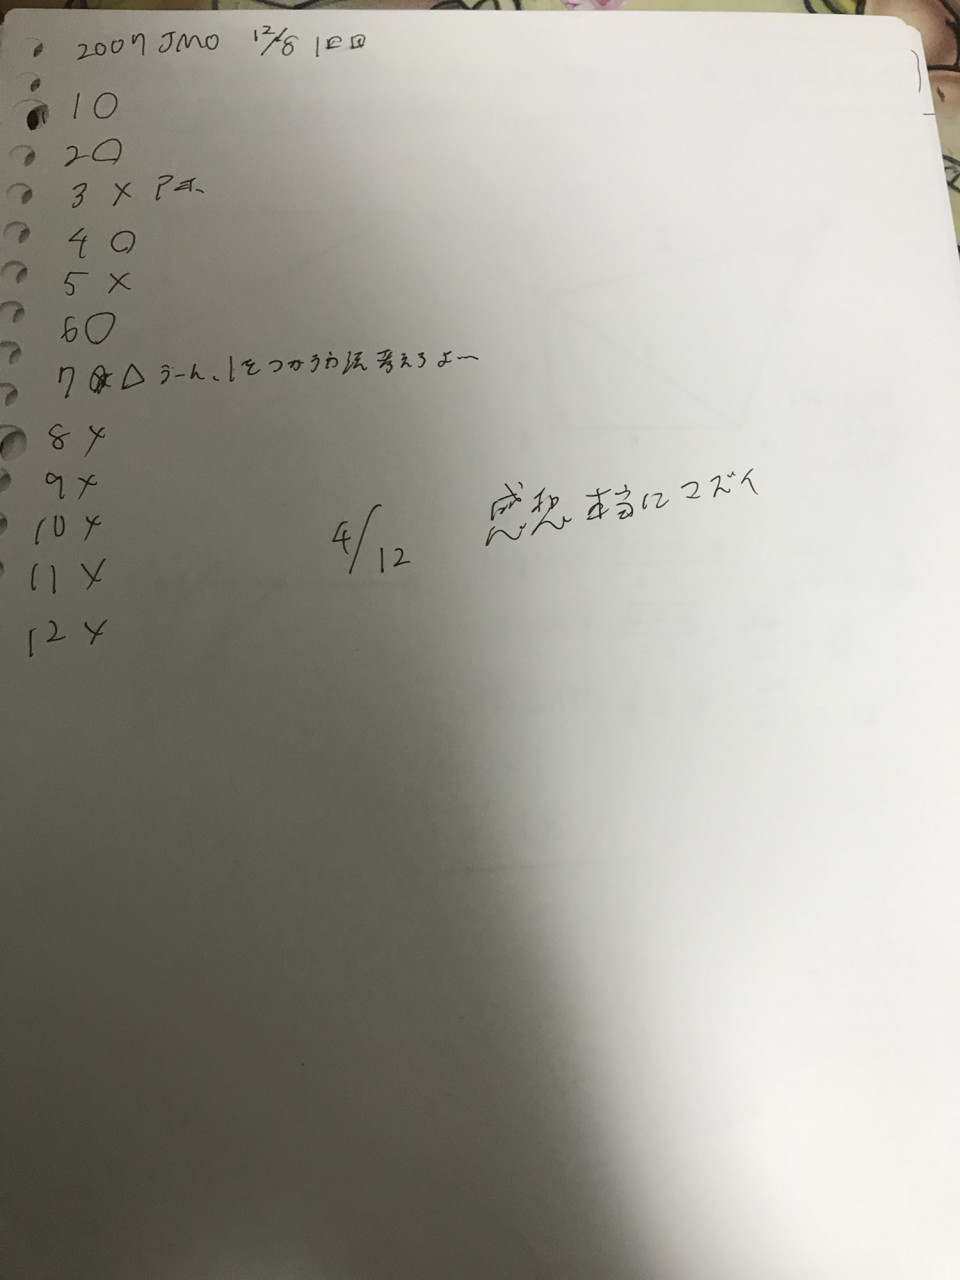 2007 JMO 12/8 1回目
1 ○
2 ○
3 ×
4 ○
5 ×
6 ○
7 △ うーん、1をつかう方法考えろよー
8 ×
9 ×
10 ×
11 ×
12 ×
4/12 感想 本当にマズイ